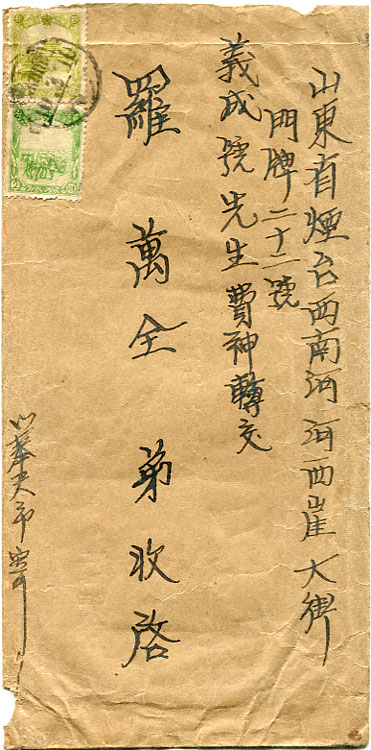 山東省煙台西南河河西崖大街
門牌二十二號
義成號先生費神轉交
羅萬全弟收啓